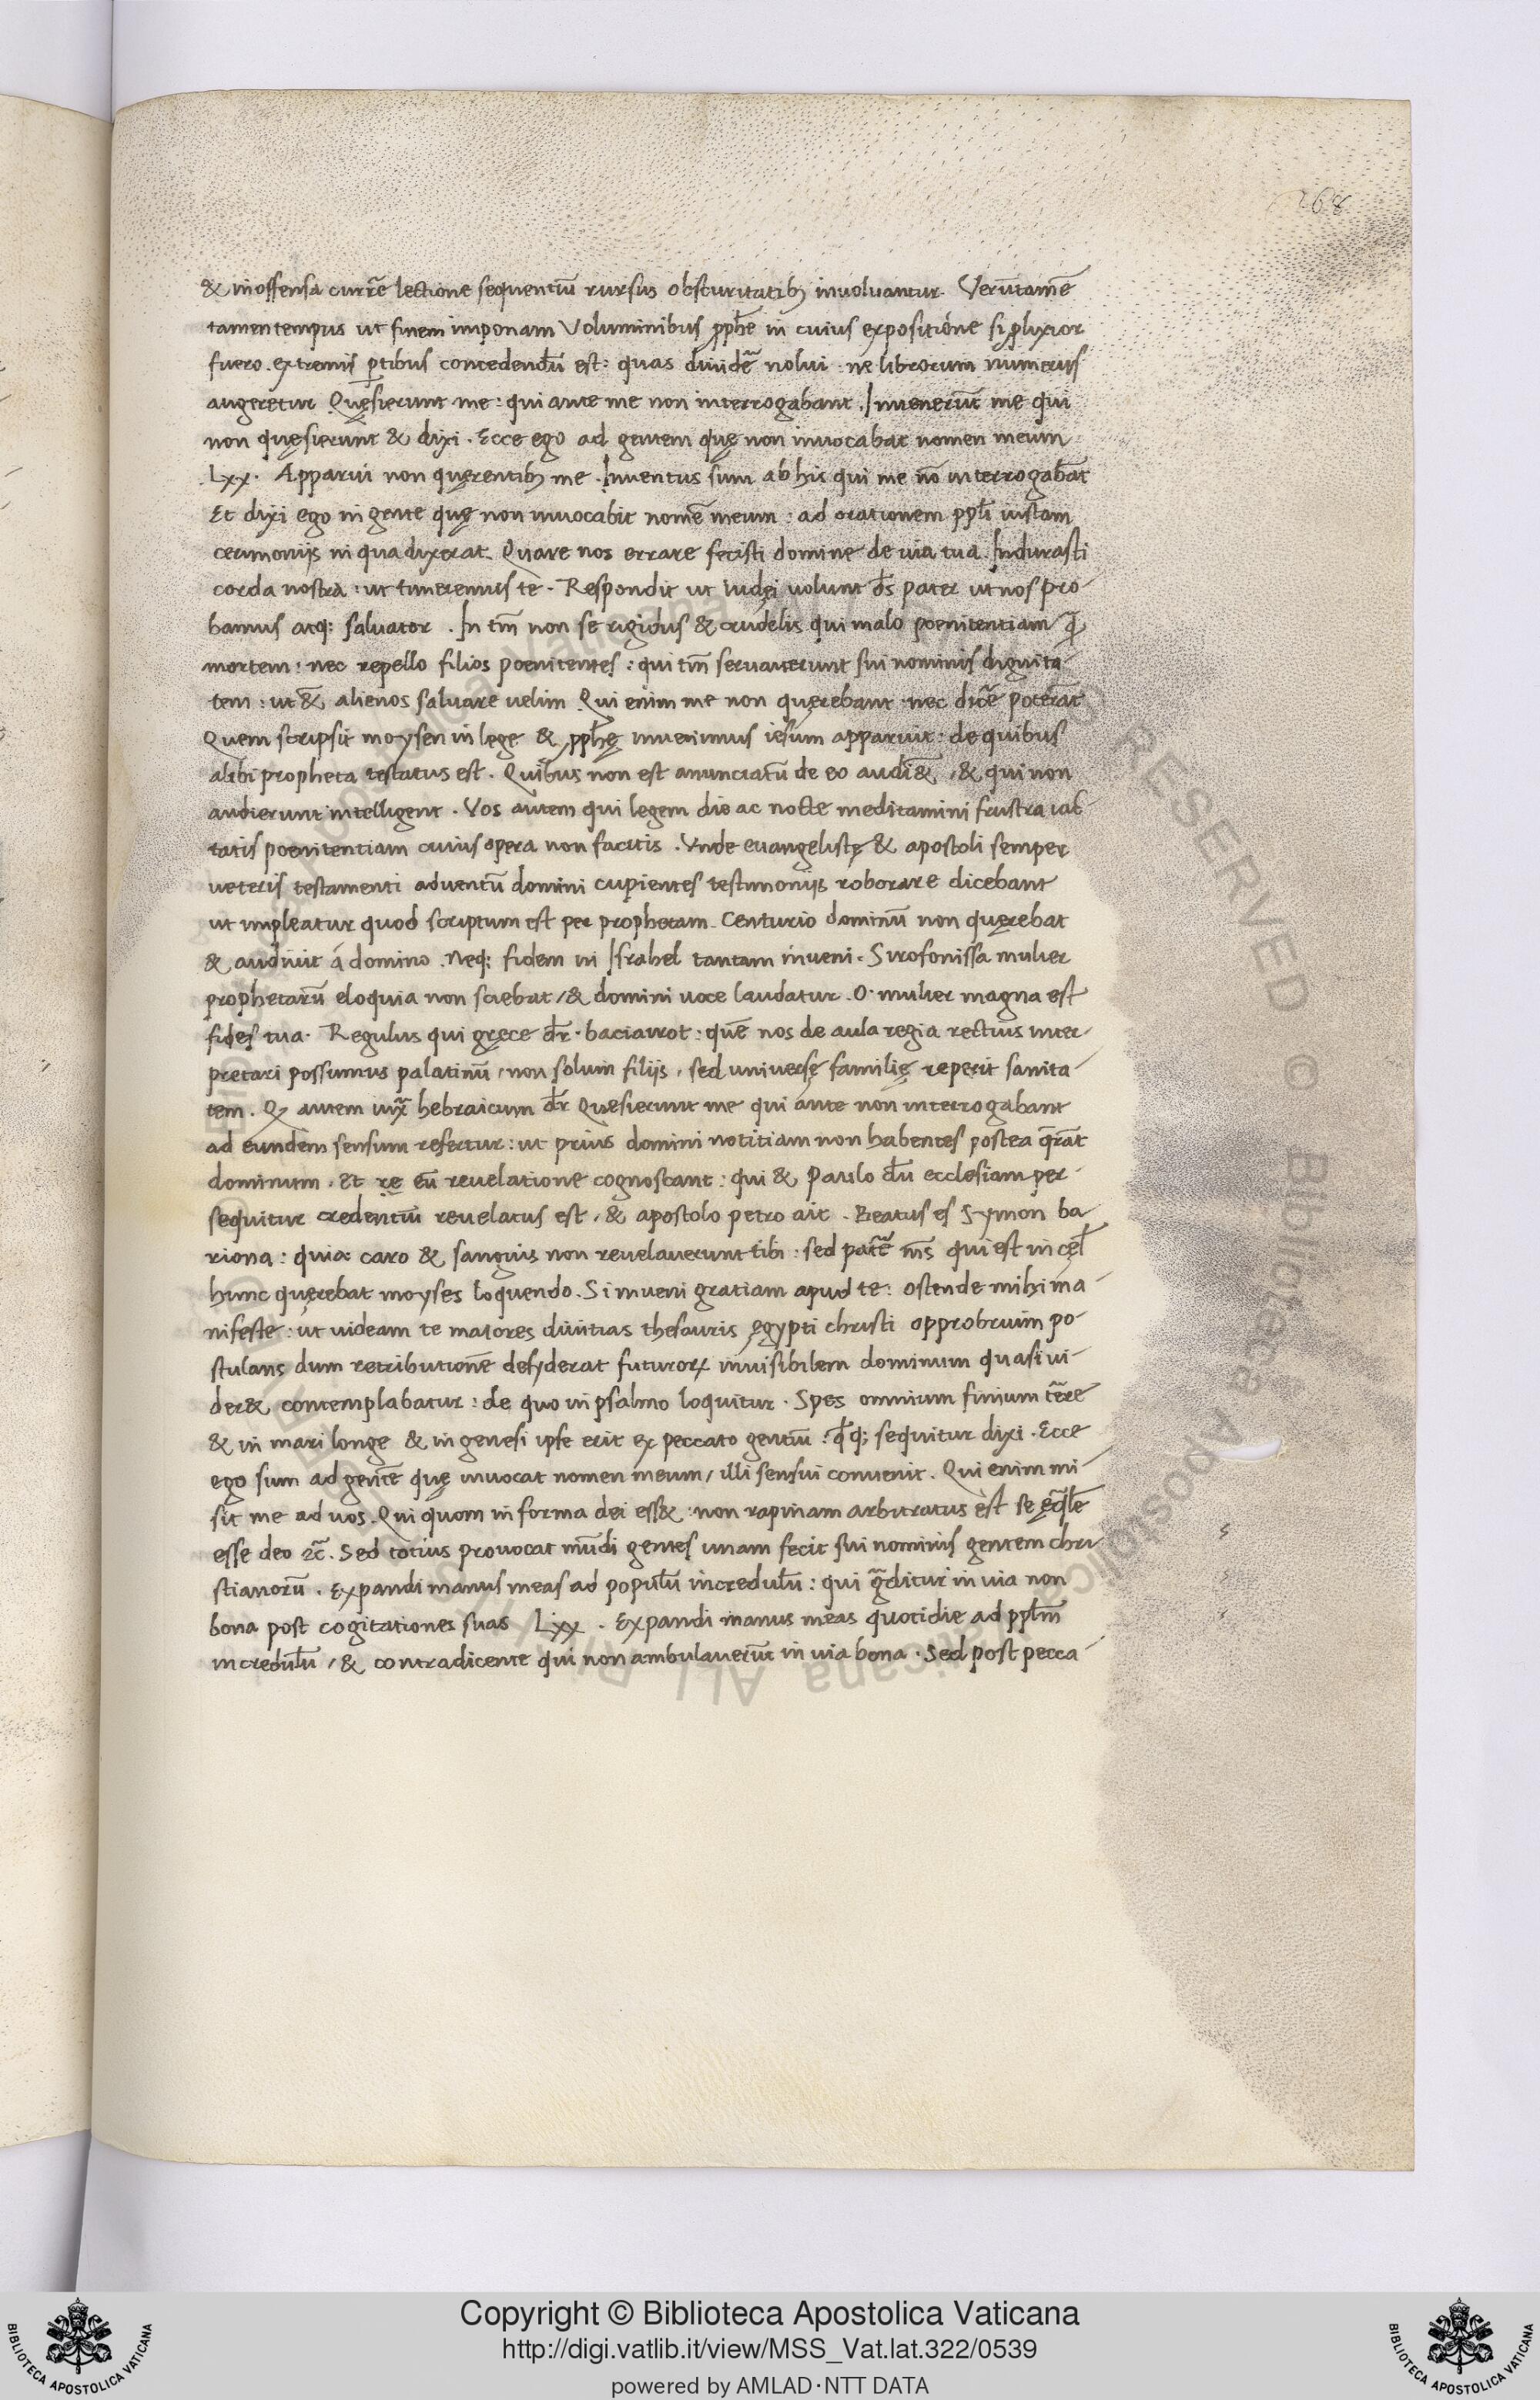 268
& inoffensa currẽ lectione sequentiũ rursus obscuritatibꝫ inuoluantur. Verũtamẽ
tamen tempus ut finem imponam Voluminibus ꝓphẽ in cuius expositione si ꝓlyxior
fuero. extremis ꝑtibus concedendũ est: quas diuidẽ nolui: ne librorum numerus
augeretur Quęsierunt me: qui ante me non interrogabant. Inuenerũt me qui
non quęsierunt & dixi. Ecce ego ad gentem quę non inuocabat nomen meum
Lxx. Apparui non quęrentibꝫ me. Inuentus sum ab his qui me nõ interrogabãt
Et dixi ego in gente quę non inuocabit nomẽ meum: ad orationem ppłi iustam
cerimoniis in qua dixerat. Quare nos errare fecisti domine de uia tua. Indurasti
corda nostra: ut timeremus te. Respondit ut iudęi uolunt ds̃ pater ut nos pro-
bamus atq; saluator. In tm̃ non se rigidus & crudelis qui malo poenitentiam q̃
mortem: nec repello filios poenitentes: qui tm̃ seruauerunt sui nominis dignita-
tem: ut & alienos saluare uelim Qui enim me non quęrebant nec dicẽ poterãt
Quem scripsit moysen in lege & ꝓphę inuenimus iesum apparuit: de quibus
alibi propheta testatus est. Quibus non est anunciatũ de eo audi&, & qui non
audierunt intelligent. Vos autem qui legem die ac nocte meditamini frustra iac-
tatis poenitentiam cuius opera non facitis. Vnde euangelistę & apostoli semper
ueteris testamenti aduentũ domini cupientes testimoniis roborare dicebant
ut impleatur quod scriptum est per prophetam. Centurio dominũ non quęrebat
& audiuit á domino. Neq; fidem in Israhel tantam inueni. Sirofonissa mulier
prophetarũ eloquia non sciebat, & domini uoce laudatur. O mulier magna est
fides tua. Regulus qui gręce dr̃. baciairot: quẽ nos de aula regia rectius inter-
pretari possumus palatinũ, non solum filiis, sed uniuersę familię reperit sanita-
tem. Q autem iux̃ hebraicum dr̃ Quesierunt me qui ante non interrogabant
ad eundem sensum refertur: ut prius domini notitiam non habentes postea q̃rãt
dominum. Et re eũ reuelatione cognoscant: qui & Paulo dũ ecclesiam per-
sequitur credentiũ reuelatus est, & apostolo petro ait. Beatus es Symon ba-
riona: quia caro & sanguis non reuelauerunt tibi: sed patẽ ms̃ qui est in cęł
hunc quęrebat moyses loquendo. Si inueni gratiam apud te: ostende mihi ma-
nifeste: ut uideam te maiores diuitias thesauris ęgypti christi opprobrium po-
stulans dum retributionẽ desyderat futurorꝝ inuisibilem dominum quasi ui-
der& contemplabatur: de quo in psalmo loquitur. Spes omnium finium tẽre
& in mari longe & in genesi ipse erit ex peccato gentiũ: q̃q; sequitur dixi. Ecce
ego sum ad gentẽ quę inuocat nomen meum, illi sensui conuenit. Qui enim mi-
sit me ad uos. Qui quom in forma dei ess& non rapinam arbitratus est se ęq̃łe
esse deo ⁊c̃. Sed totius prouocat mũdi gentes unam fecit sui nominis gentem chri
stianorũ. Expandi manus meas ad populũ incredulũ: qui g̃ditur in uia non
bona post cogitationes suas Lxx. Expandi manus meas quotidie ad ppłm
incredulũ, & contradicente qui non ambulauerũt in uia bona. Sed post pecca-
Copyright © Biblioteca Apostolica Vaticana
http://digi.vatlib.it/view/MSS_Vat.lat.322/0539
powered by AMLAD·NTT DATA
BIBLIOTECA APOSTOLICA VATICANA
BIBLIOTECA APOSTOLICA VATICANA